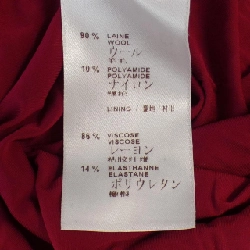 90 % LAINE
WOOL
ウール
10 % POLYAMIDE
POLYAMIDE
ナイロン
LINING /
86 % VISCOSE
VISCOSE
レーヨン
14 % ELASTHANNE
ELASTANE
ポリウレタン